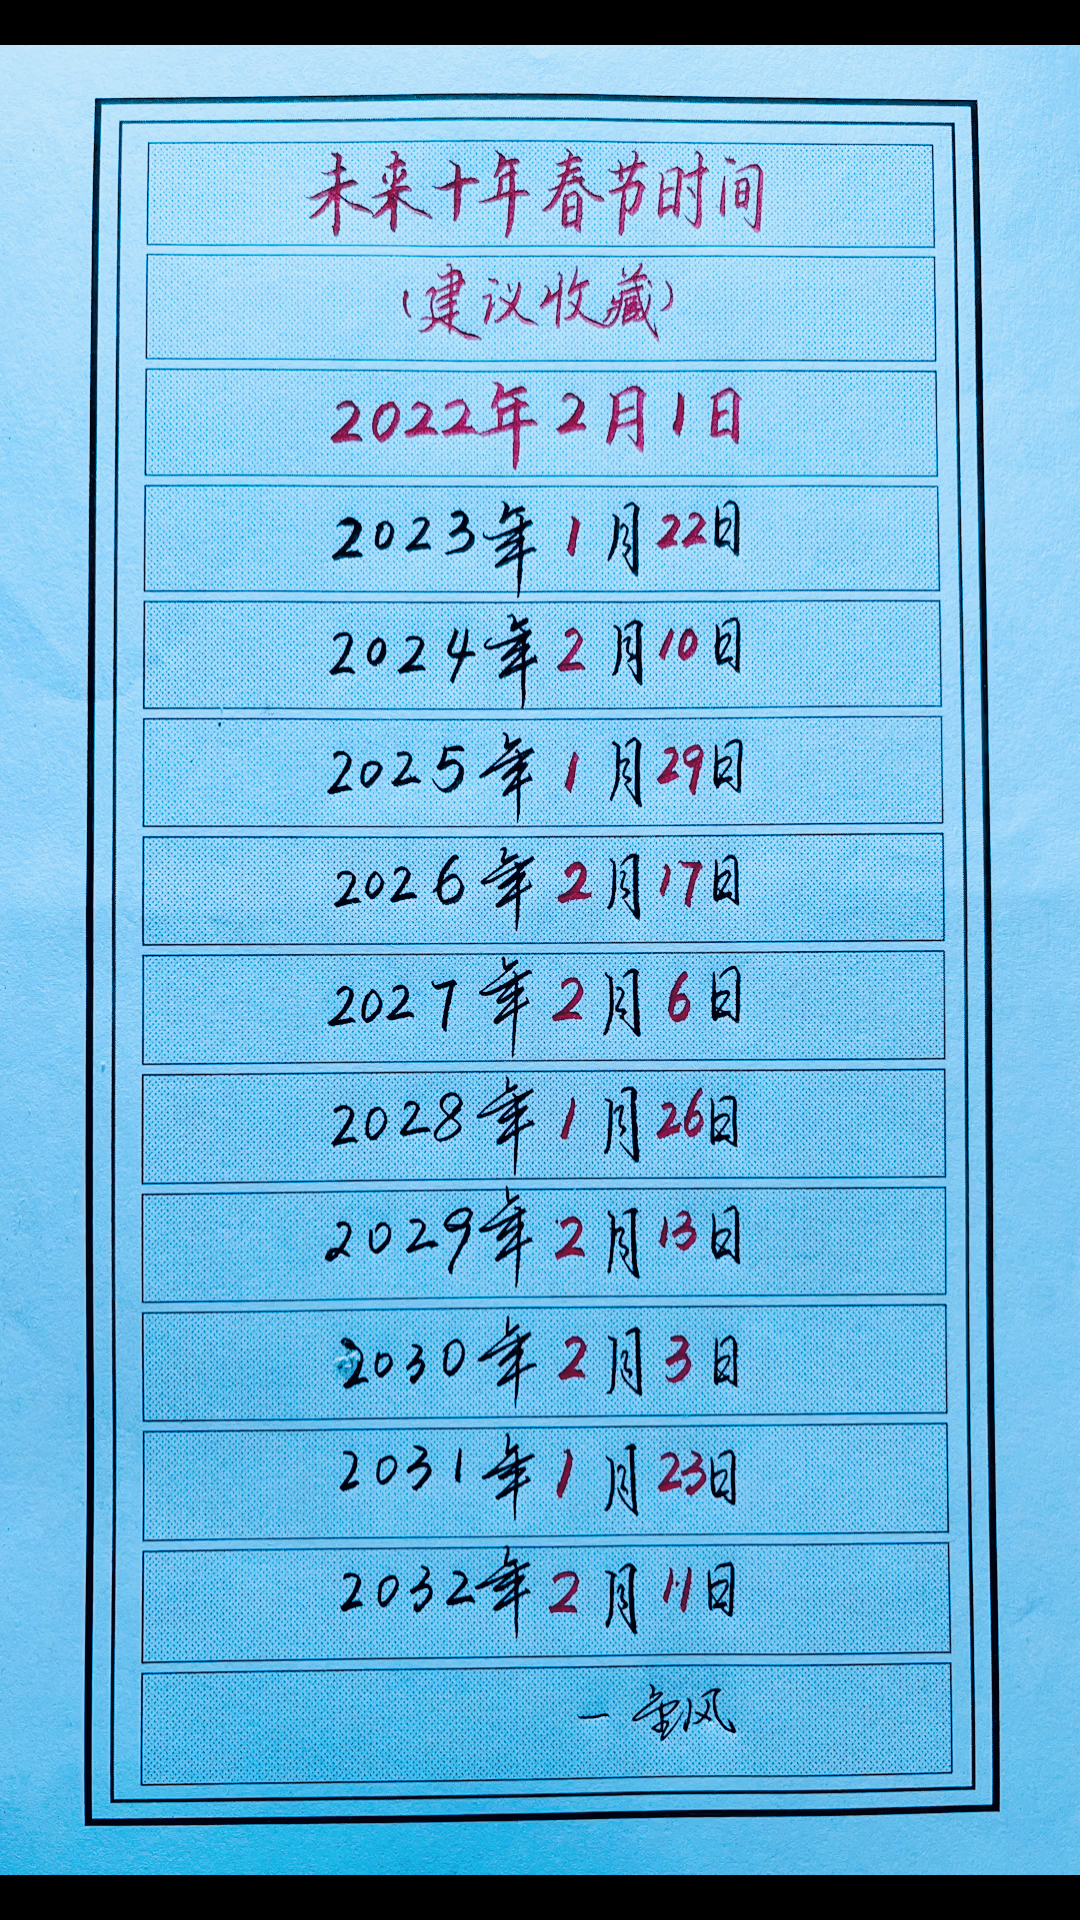 未来十年春节时间
(建议收藏)
2022年2月1日
2023年1月22日
2024年2月10日
2025年1月29日
2026年2月17日
2027年2月6日
2028年1月26日
2029年2月13日
2030年2月3日
2031年1月23日
2032年2月11日
一 风